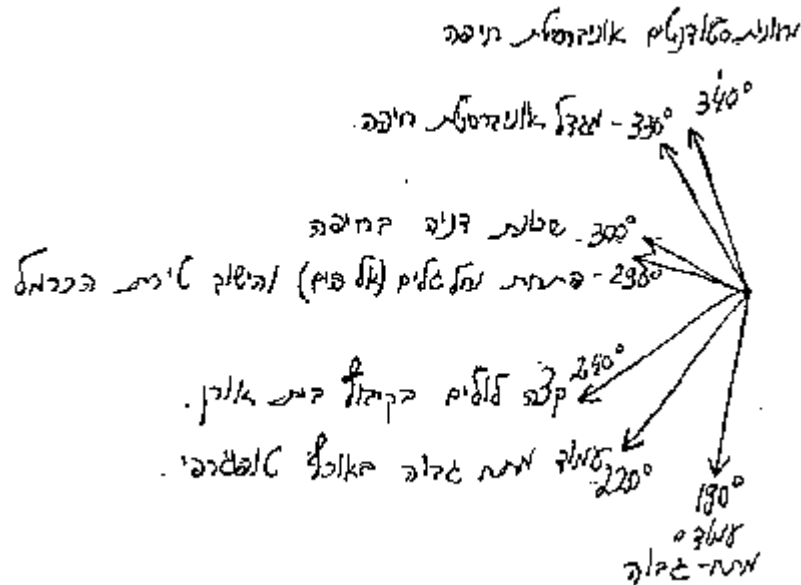 מעונות סטודנטים אוניברסיטת חיפה
340°
330° - מגדל אוניברסיטת חיפה.
300° - שכונת דניה בחיפה
290° - פתחת נחל גלים (אל פום) והישוב טירת הכרמל
240° קצה לולים בקיבוץ בית אורן.
עמוד מתח גבוה באוכף טופוגרפי.
220°
190°
עמוד
מתח-גבוה